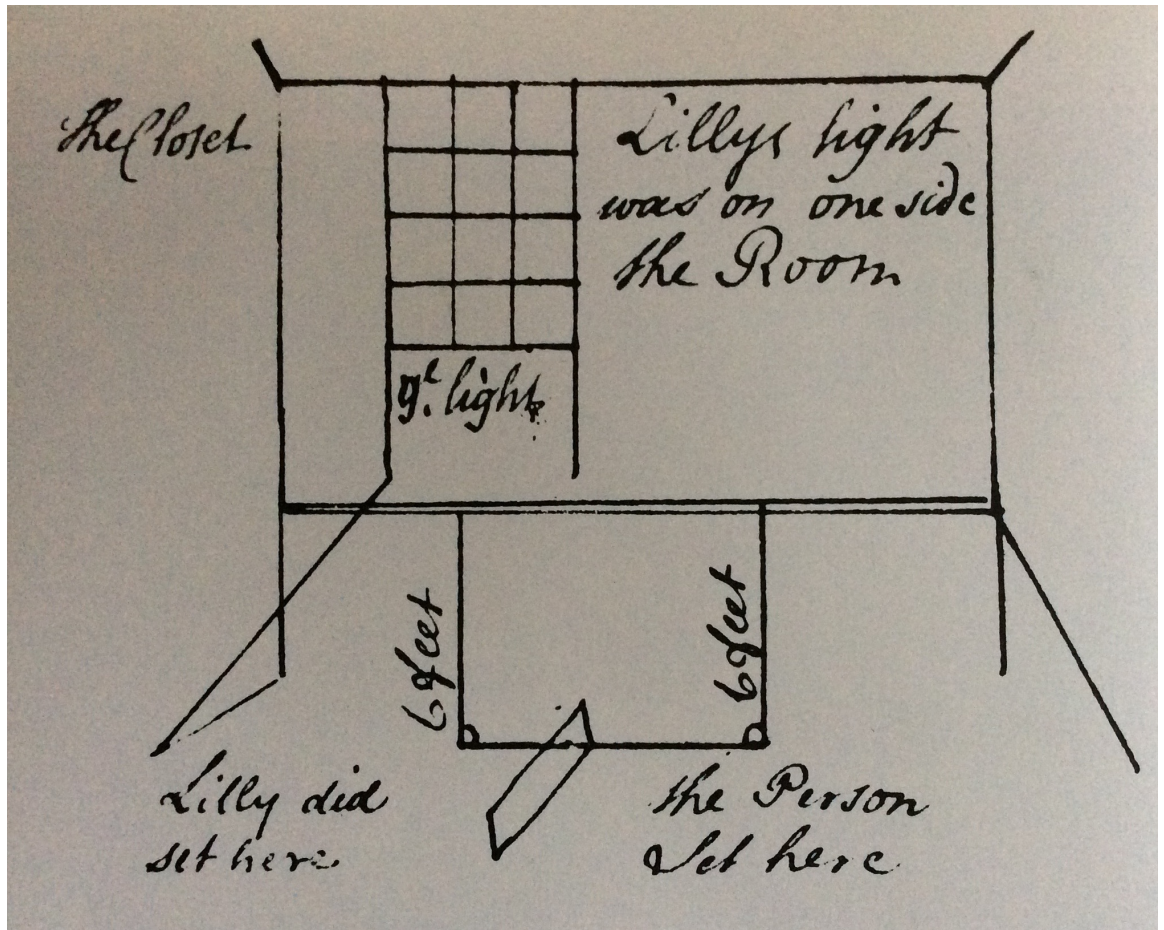 the Closet
Lillys light
was on one side
the Room
yͤ. light
6 feet
6 feet
Lilly did
set here
the Person
Set here